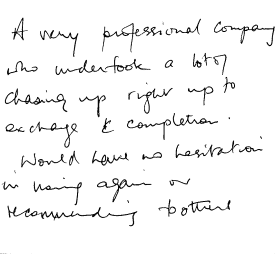 A very professional company
who undertook a lot of
chasing up right up to
exchange & completion.
Would have no hesitation
in using again or
recommending to others